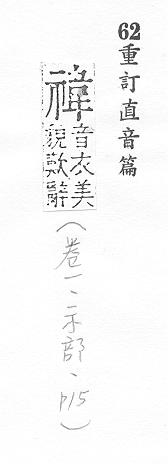 62重訂直音篇
禕音衣美
貌歎辭
(卷一、示部、p15)